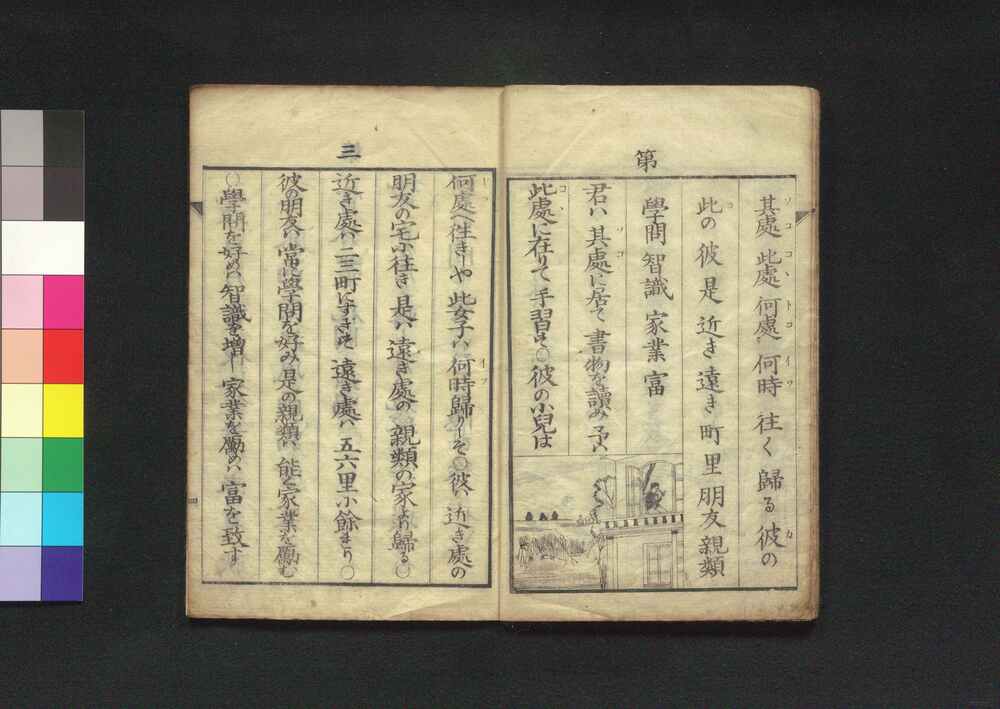 第
其處 此處 何處 何時 往く 歸る 彼の
此の 彼 是 近き 遠き 町 里 朋友 親類
學問 智識 家業 富
君ハ 其處に居て 書物を讀み 予ハ
此處に在りて 手習す○彼の小兒は
三
何處へ往きしや 此女子ハ 何時歸りしぞ○彼ハ 近き處の
朋友の宅に往き 是ハ 遠き處の 親類の家より歸る○
近き處ハ 二三町にすぎず 遠き處ハ 五六里に餘まり○
彼の朋友ハ 常に學問を好み 是の親類ハ 能く家業を勵む
○學問を好めバ 智識を増し 家業を勵めバ 富を致す